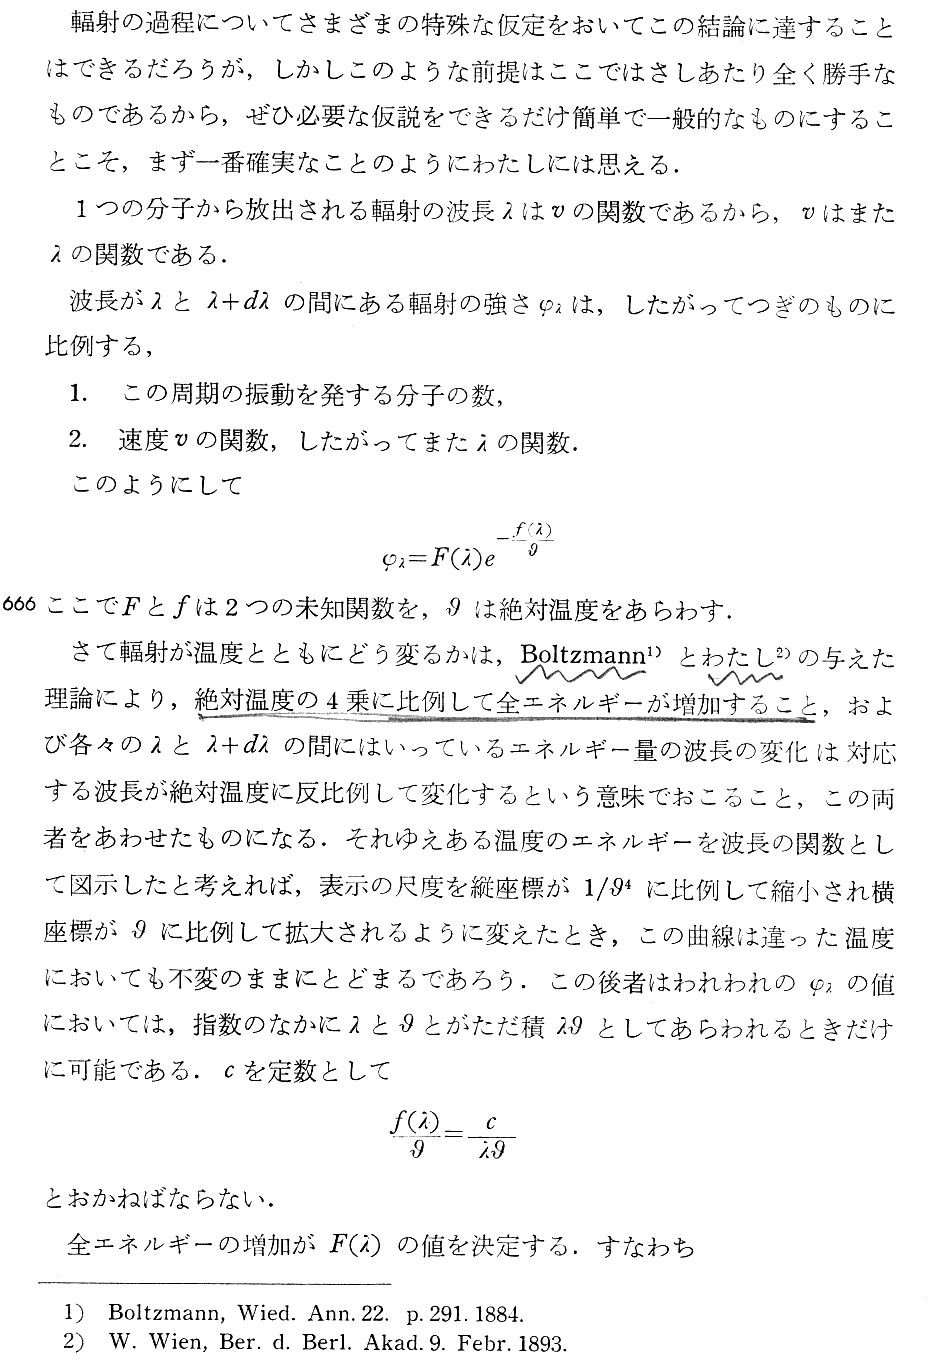 輻射の過程についてさまざまの特殊な仮定をおいてこの結論に達すること
はできるだろうが，しかしこのような前提はここではさしあたり全く勝手な
ものであるから，ぜひ必要な仮説をできるだけ簡単で一般的なものにするこ
とこそ，まず一番確実なことのようにわたしには思える．
1つの分子から放出される輻射の波長λはvの関数であるから，vはまた
λの関数である．
波長がλと λ+dλ の間にある輻射の強さφλは，したがってつぎのものに
比例する，
1. この周期の振動を発する分子の数，
2. 速度vの関数，したがってまたλの関数．
このようにして
φλ=F(λ)e^{-f(λ)/ϑ}
666 ここでFとfは2つの未知関数を，ϑ は絶対温度をあらわす．
さて輻射が温度とともにどう変るかは，Boltzmann1) とわたし2)の与えた
理論により，絶対温度の4乗に比例して全エネルギーが増加すること，およ
び各々のλと λ+dλ の間にはいっているエネルギー量の波長の変化は対応
する波長が絶対温度に反比例して変化するという意味でおこること，この両
者をあわせたものになる．それゆえある温度のエネルギーを波長の関数とし
て図示したと考えれば，表示の尺度を縦座標が 1/ϑ4 に比例して縮小され横
座標が ϑ に比例して拡大されるように変えたとき，この曲線は違った温度
においても不変のままにとどまるであろう．この後者はわれわれの φλ の値
においては，指数のなかにλとϑとがただ積 λϑ としてあらわれるときだけ
に可能である．cを定数として
f(λ)/ϑ=c/λϑ
とおかねばならない．
全エネルギーの増加が F(λ) の値を決定する．すなわち
1) Boltzmann, Wied. Ann. 22. p. 291. 1884.
2) W. Wien, Ber. d. Berl. Akad. 9. Febr. 1893.